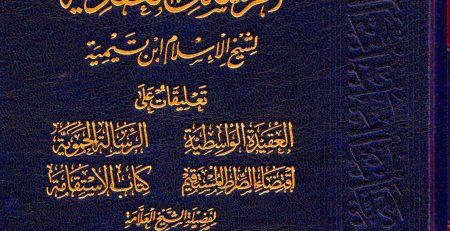 لشيخ الإسلام ابن تيمية
تعليقات على
العقيدة الواسطية الرسالة الحموية
اقتضاء الصراط المستقيم كتاب الاستقامة
لفضيلة الشيخ العلامة